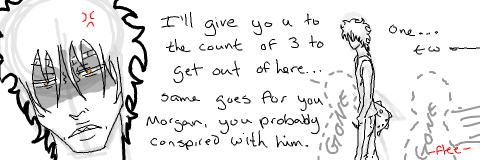 I'll give you to
the count of 3 to
get out of here...
same goes for you
Morgan, you probably
conspired with him.
One...
two
Gone
Gone
-flee-